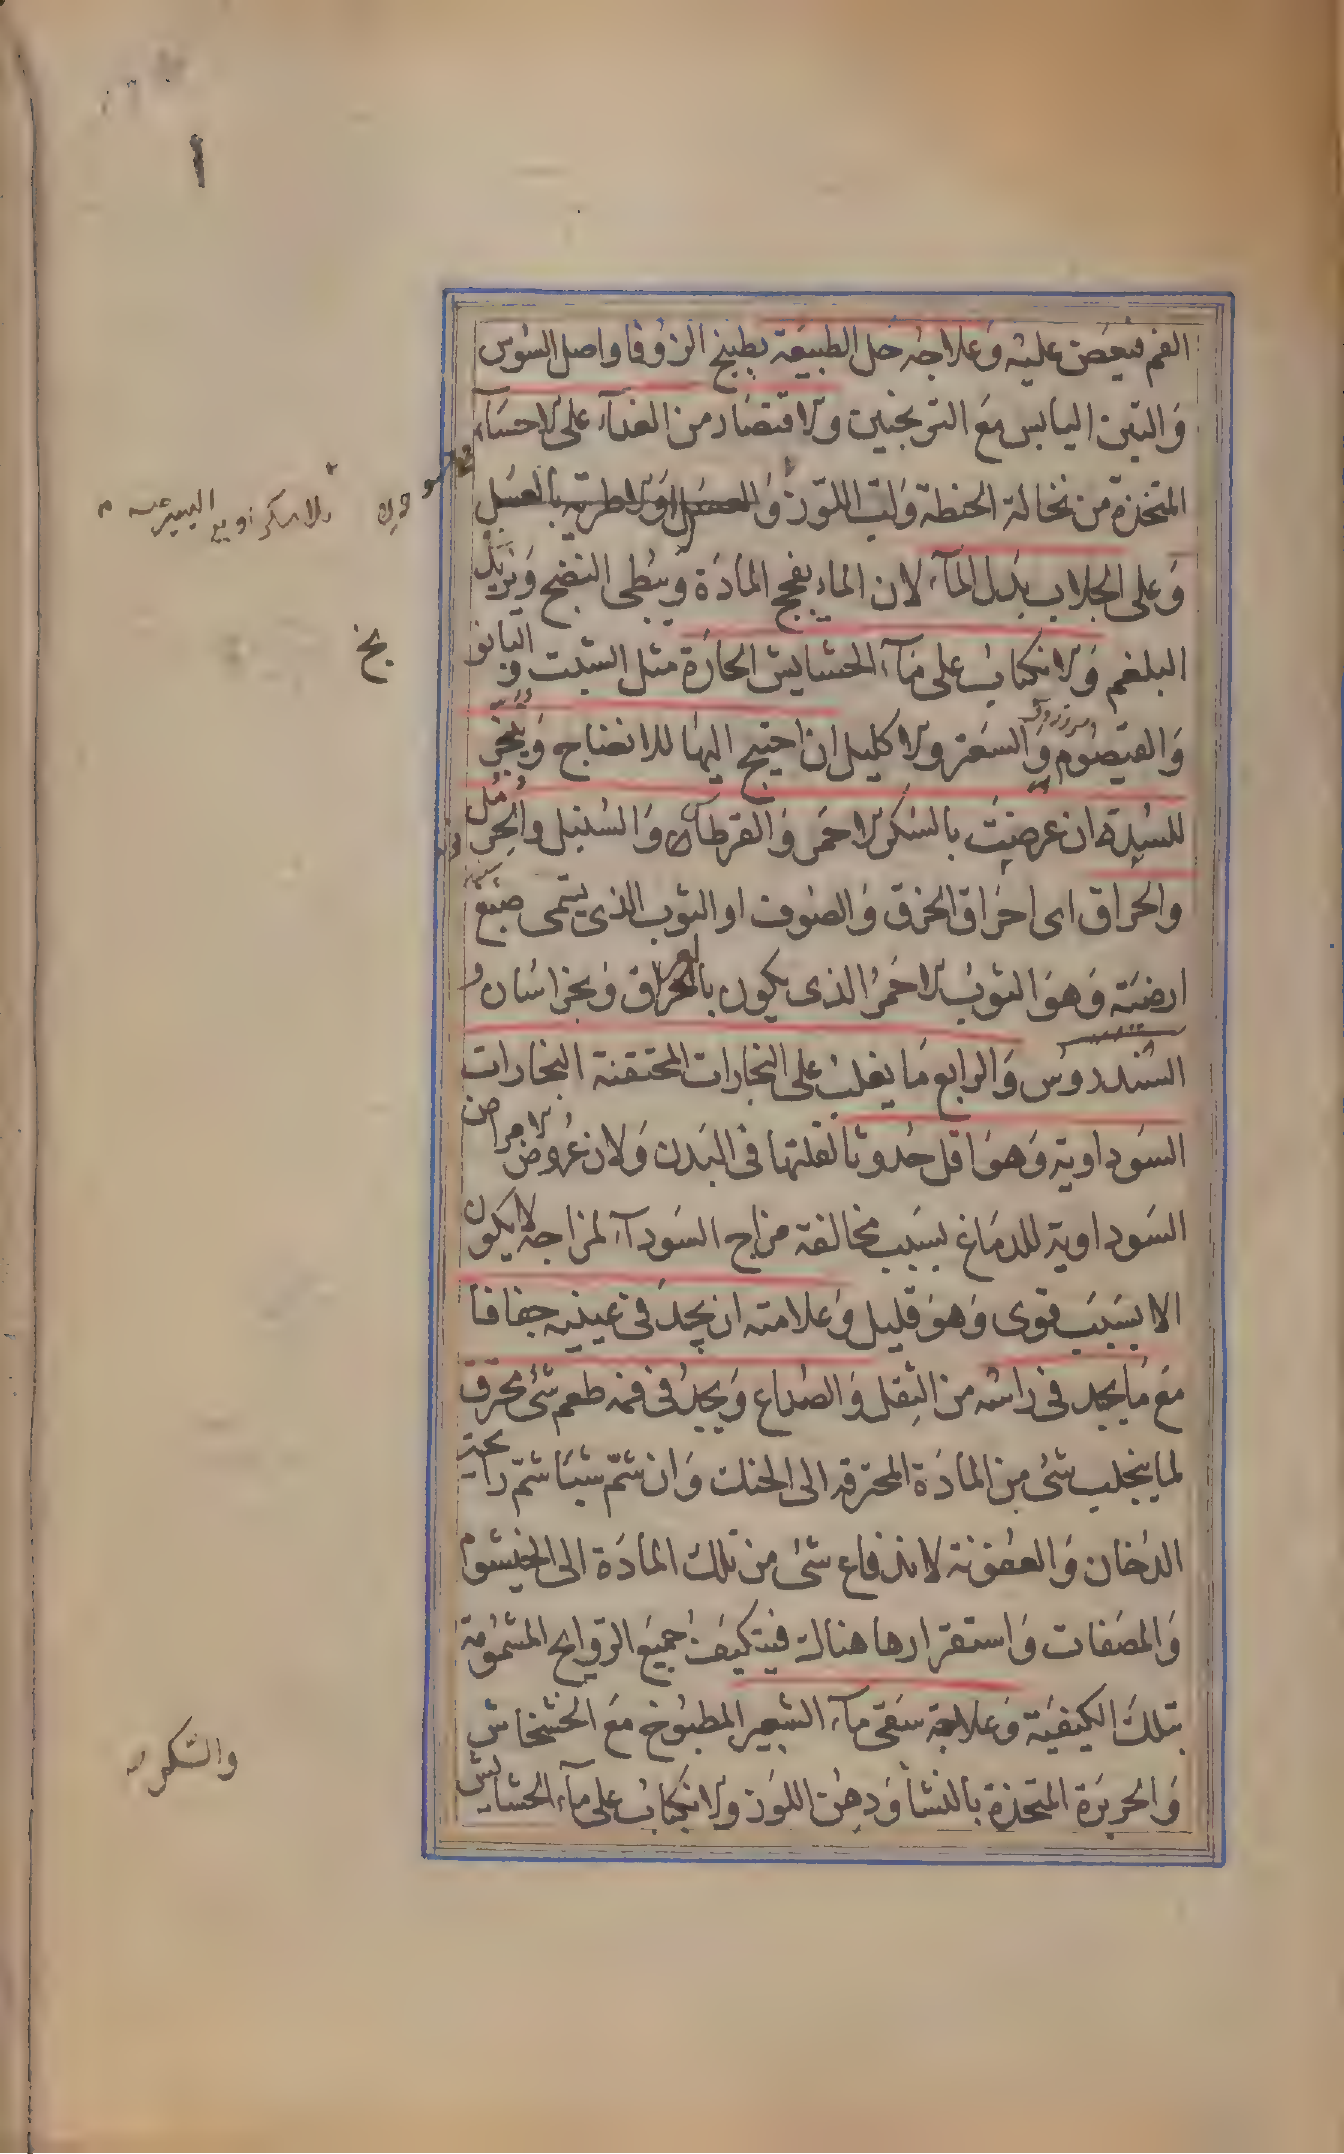 الفم فيعض عليه وعلاجه حل الطبيعة بطبيخ الزوفا واصل السوس
والتين اليابس مع الترنجبين والاقتصار من الغذآء على الاحسآء
المتخذة من نخالة الحنطة ولب اللوز والعسل او الاطرية بالعسل
وعلى الجلاب بدل المآء لان الماء يفجج المادة ويبطى النضج ويزيل
البلغم والانكباب على مآء الحشايش الحارة مثل الشبت والبابونج
والقيصوم والسعتر والاكليل ان احتيج اليها للانضاج والتبخير
للسدة ان عرضت بالسكر الاحمر والقرطاس والسنبل والحرمل
والحراق اى احراق الخرق والصوف او الثوب الذى يسمى صبغ
ارضية وهو الثوب الاحمر الذى يكون بالعراق وبخراسان و
السندروس والرابع ما يغلب على البخارات المحتقنة البخارات
السوداوية وهو اقل حدوثا لقلتها فى البدن ولان عروض الامراض
السوداوية للدماغ بسبب مخالفة مزاج السودآء لمزاجه لا يكون
الا بسبب قوى وهو قليل وعلامته ان يجد فى عينيه جفافا
مع ما يجد فى راسه من الثقل والصداع ويجد فى فمه طعم شئ محرق
لما ينجلب شئ من المادة المحترقة الى الحنك وان شم شيئا شم رايحة
الدخان والعفونة لاندفاع شئ من تلك المادة الى الخيشوم
والمصفات واستقرارها هناك فيتكيف جميع الروايح المشمومة
بتلك الكيفية وعلاجة سقى مآء الشعير المطبوخ مع الخشخاش
والسكر
والحريرة المتخذة بالنشا ودهن اللوز والانكباب على مآء الحشايش